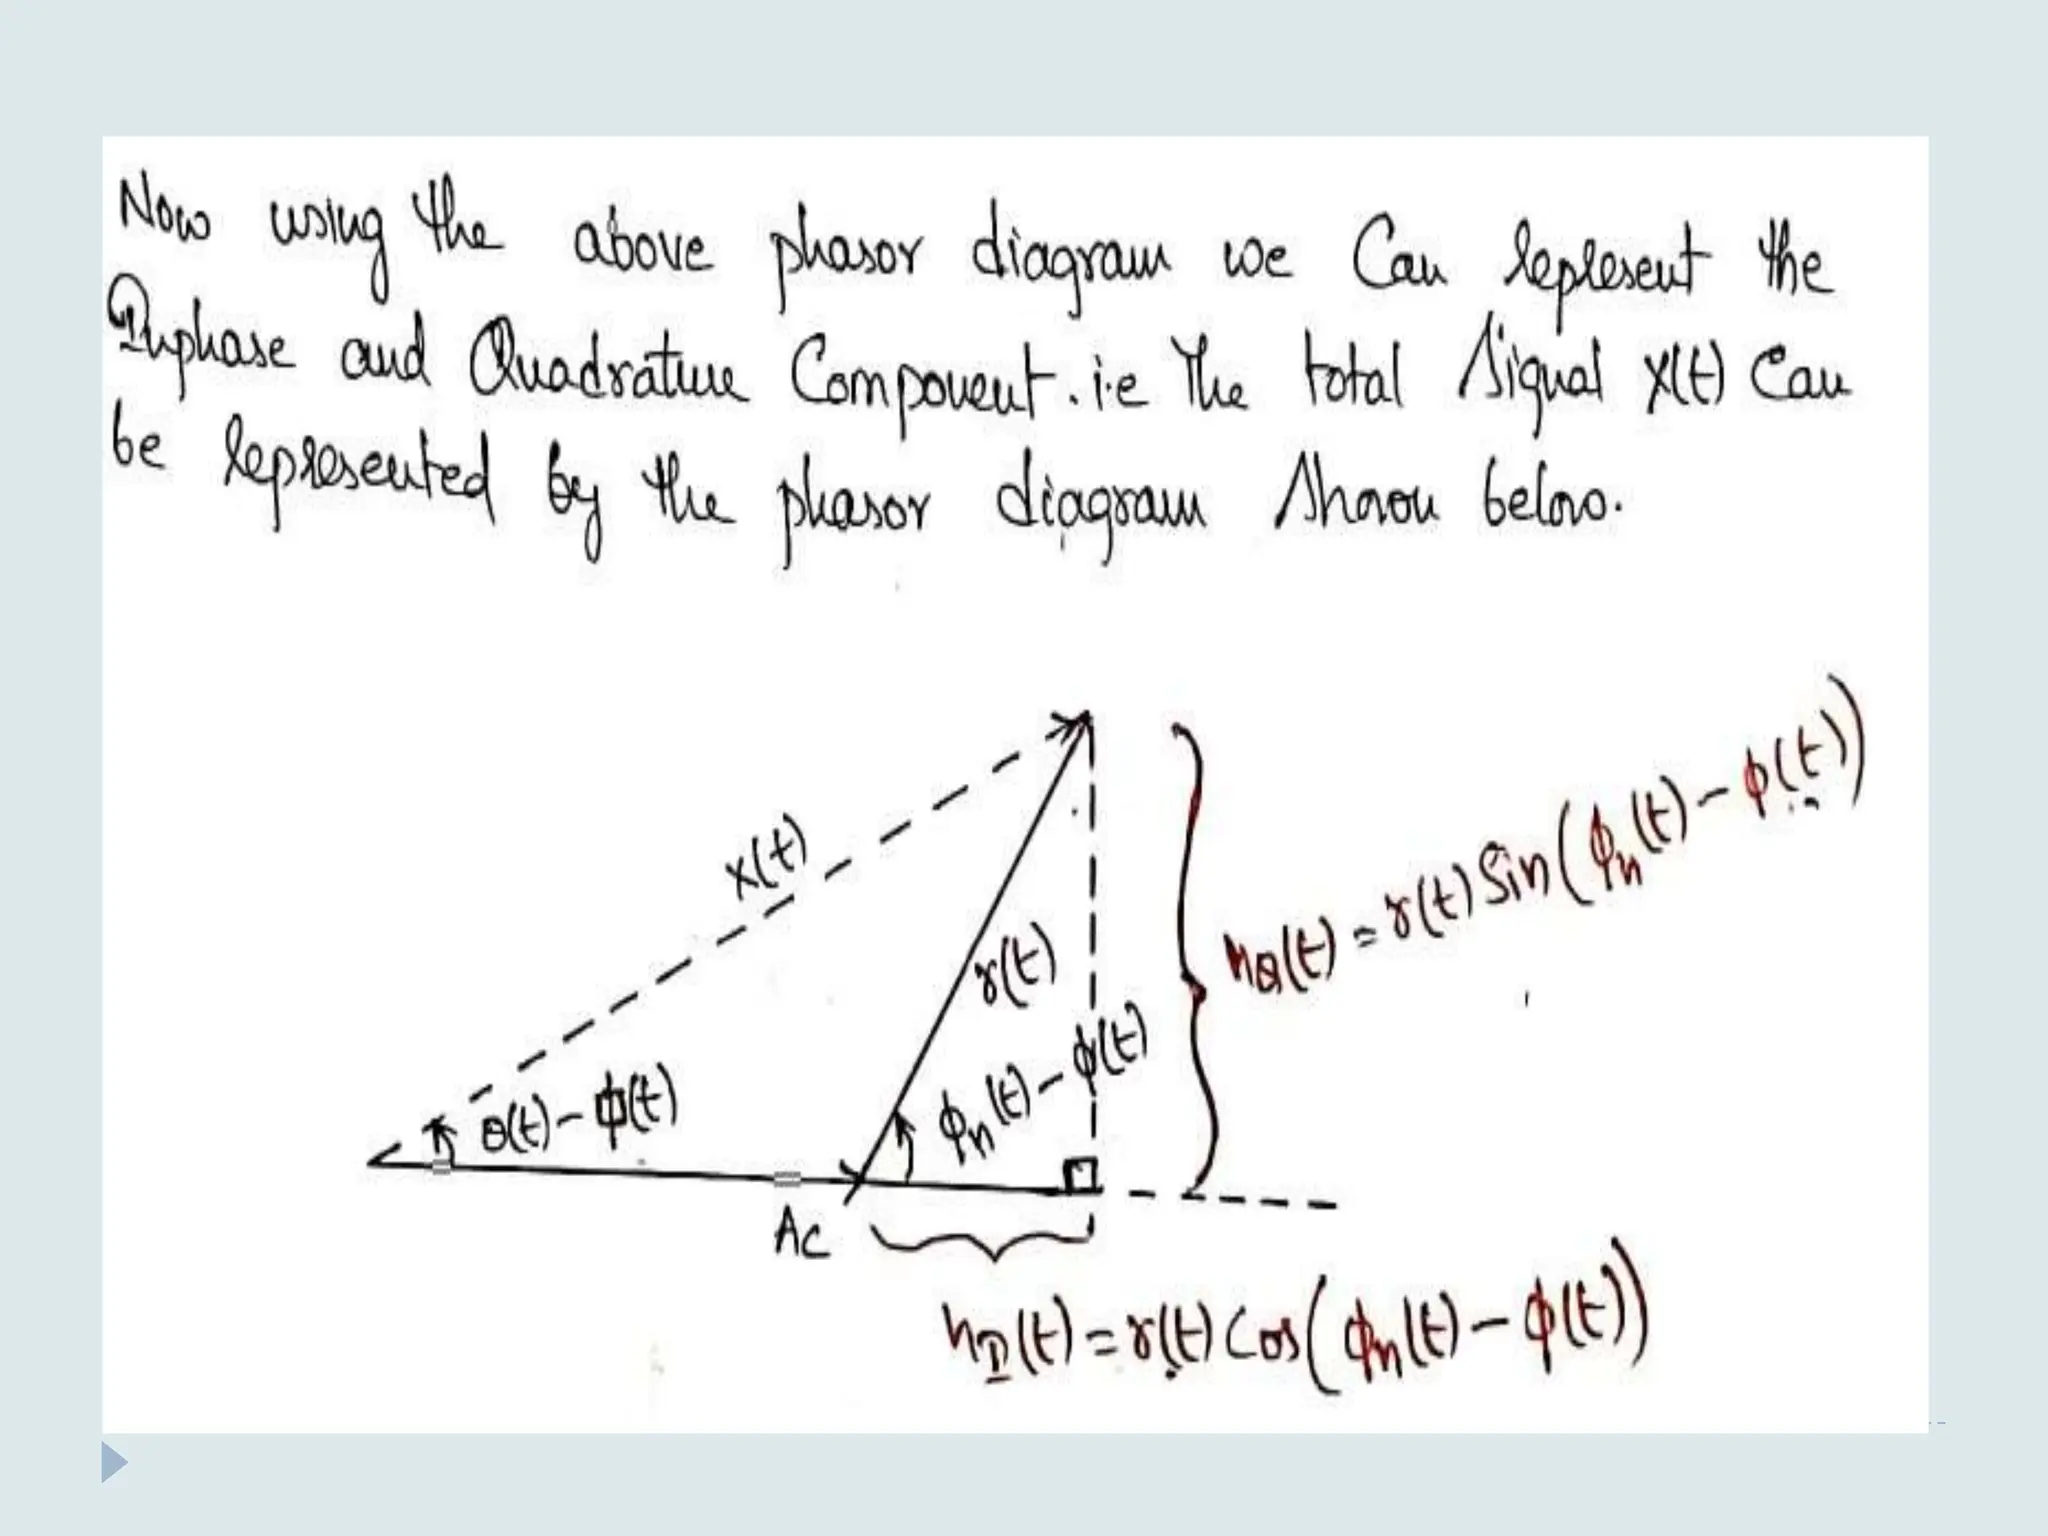 Now using the above phasor diagram we Can represent the
Inphase and Quadrature Component. i.e The total Signal x(t) Can
be represented by the phasor diagram shown below.
x(t)
r(t)
nQ(t) = r(t) Sin(ϕn(t) - ϕ(t))
θ(t) - ϕ(t)
ϕn(t) - ϕ(t)
Ac
nI(t) = r(t) Cos(ϕn(t) - ϕ(t))